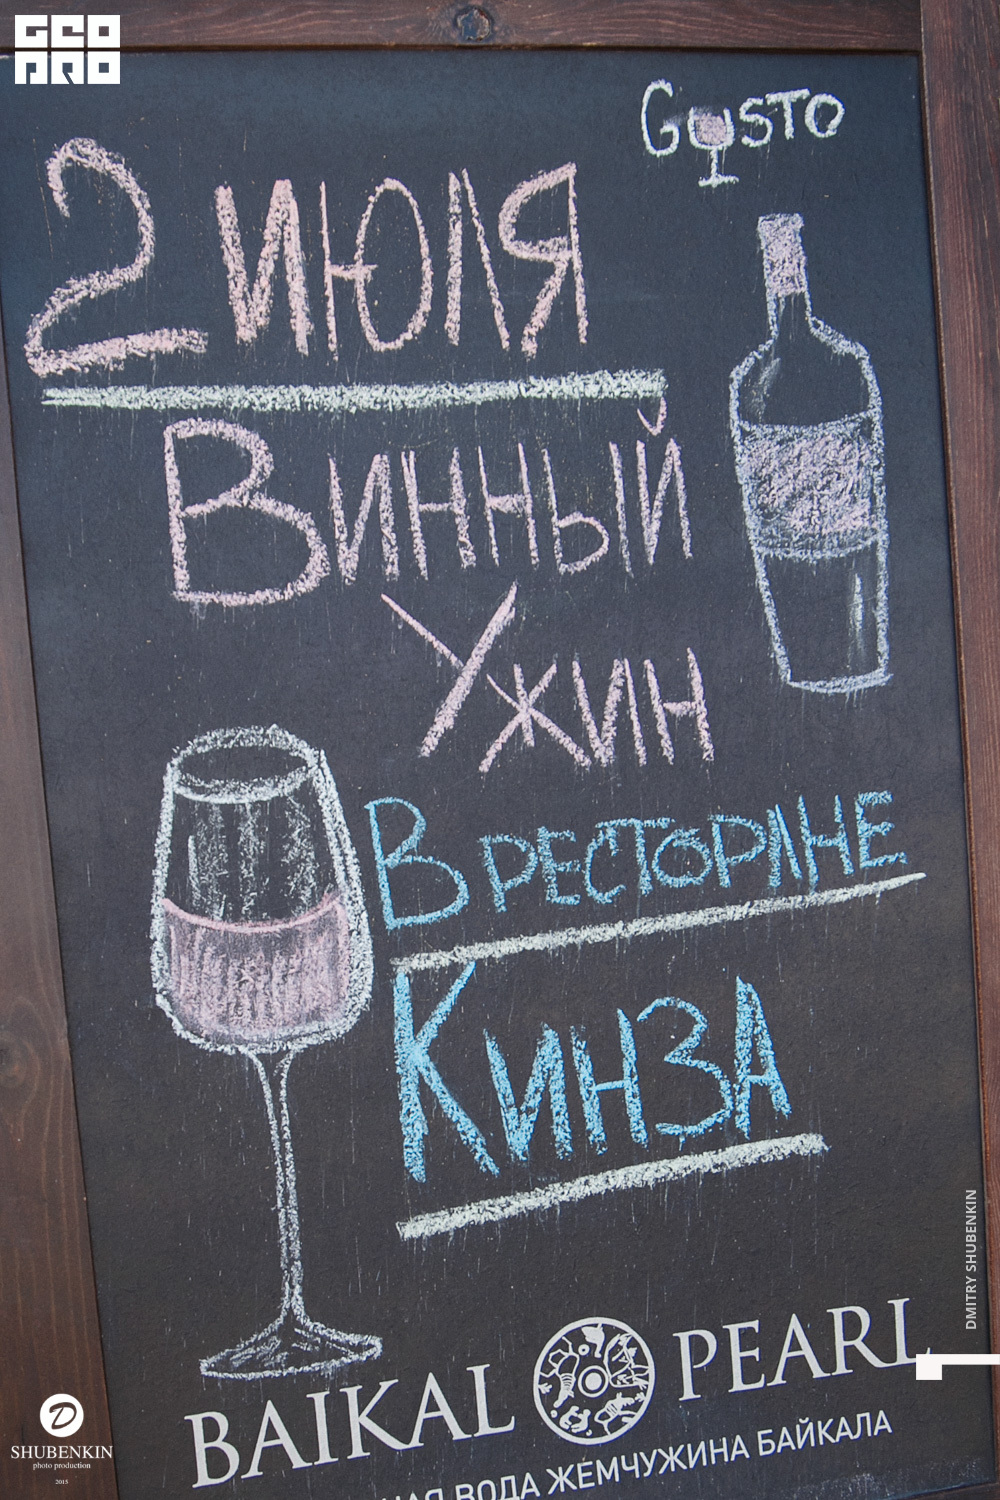 GEO
PRO
GUSTO
2 ИЮЛЯ
ВИННЫЙ
УЖИН
В РЕСТОРАНЕ
КИНЗА
BAIKAL PEARL
ВОДА ЖЕМЧУЖИНА БАЙКАЛА
DMITRY SHUBENKIN
D
SHUBENKIN
photo production
2015